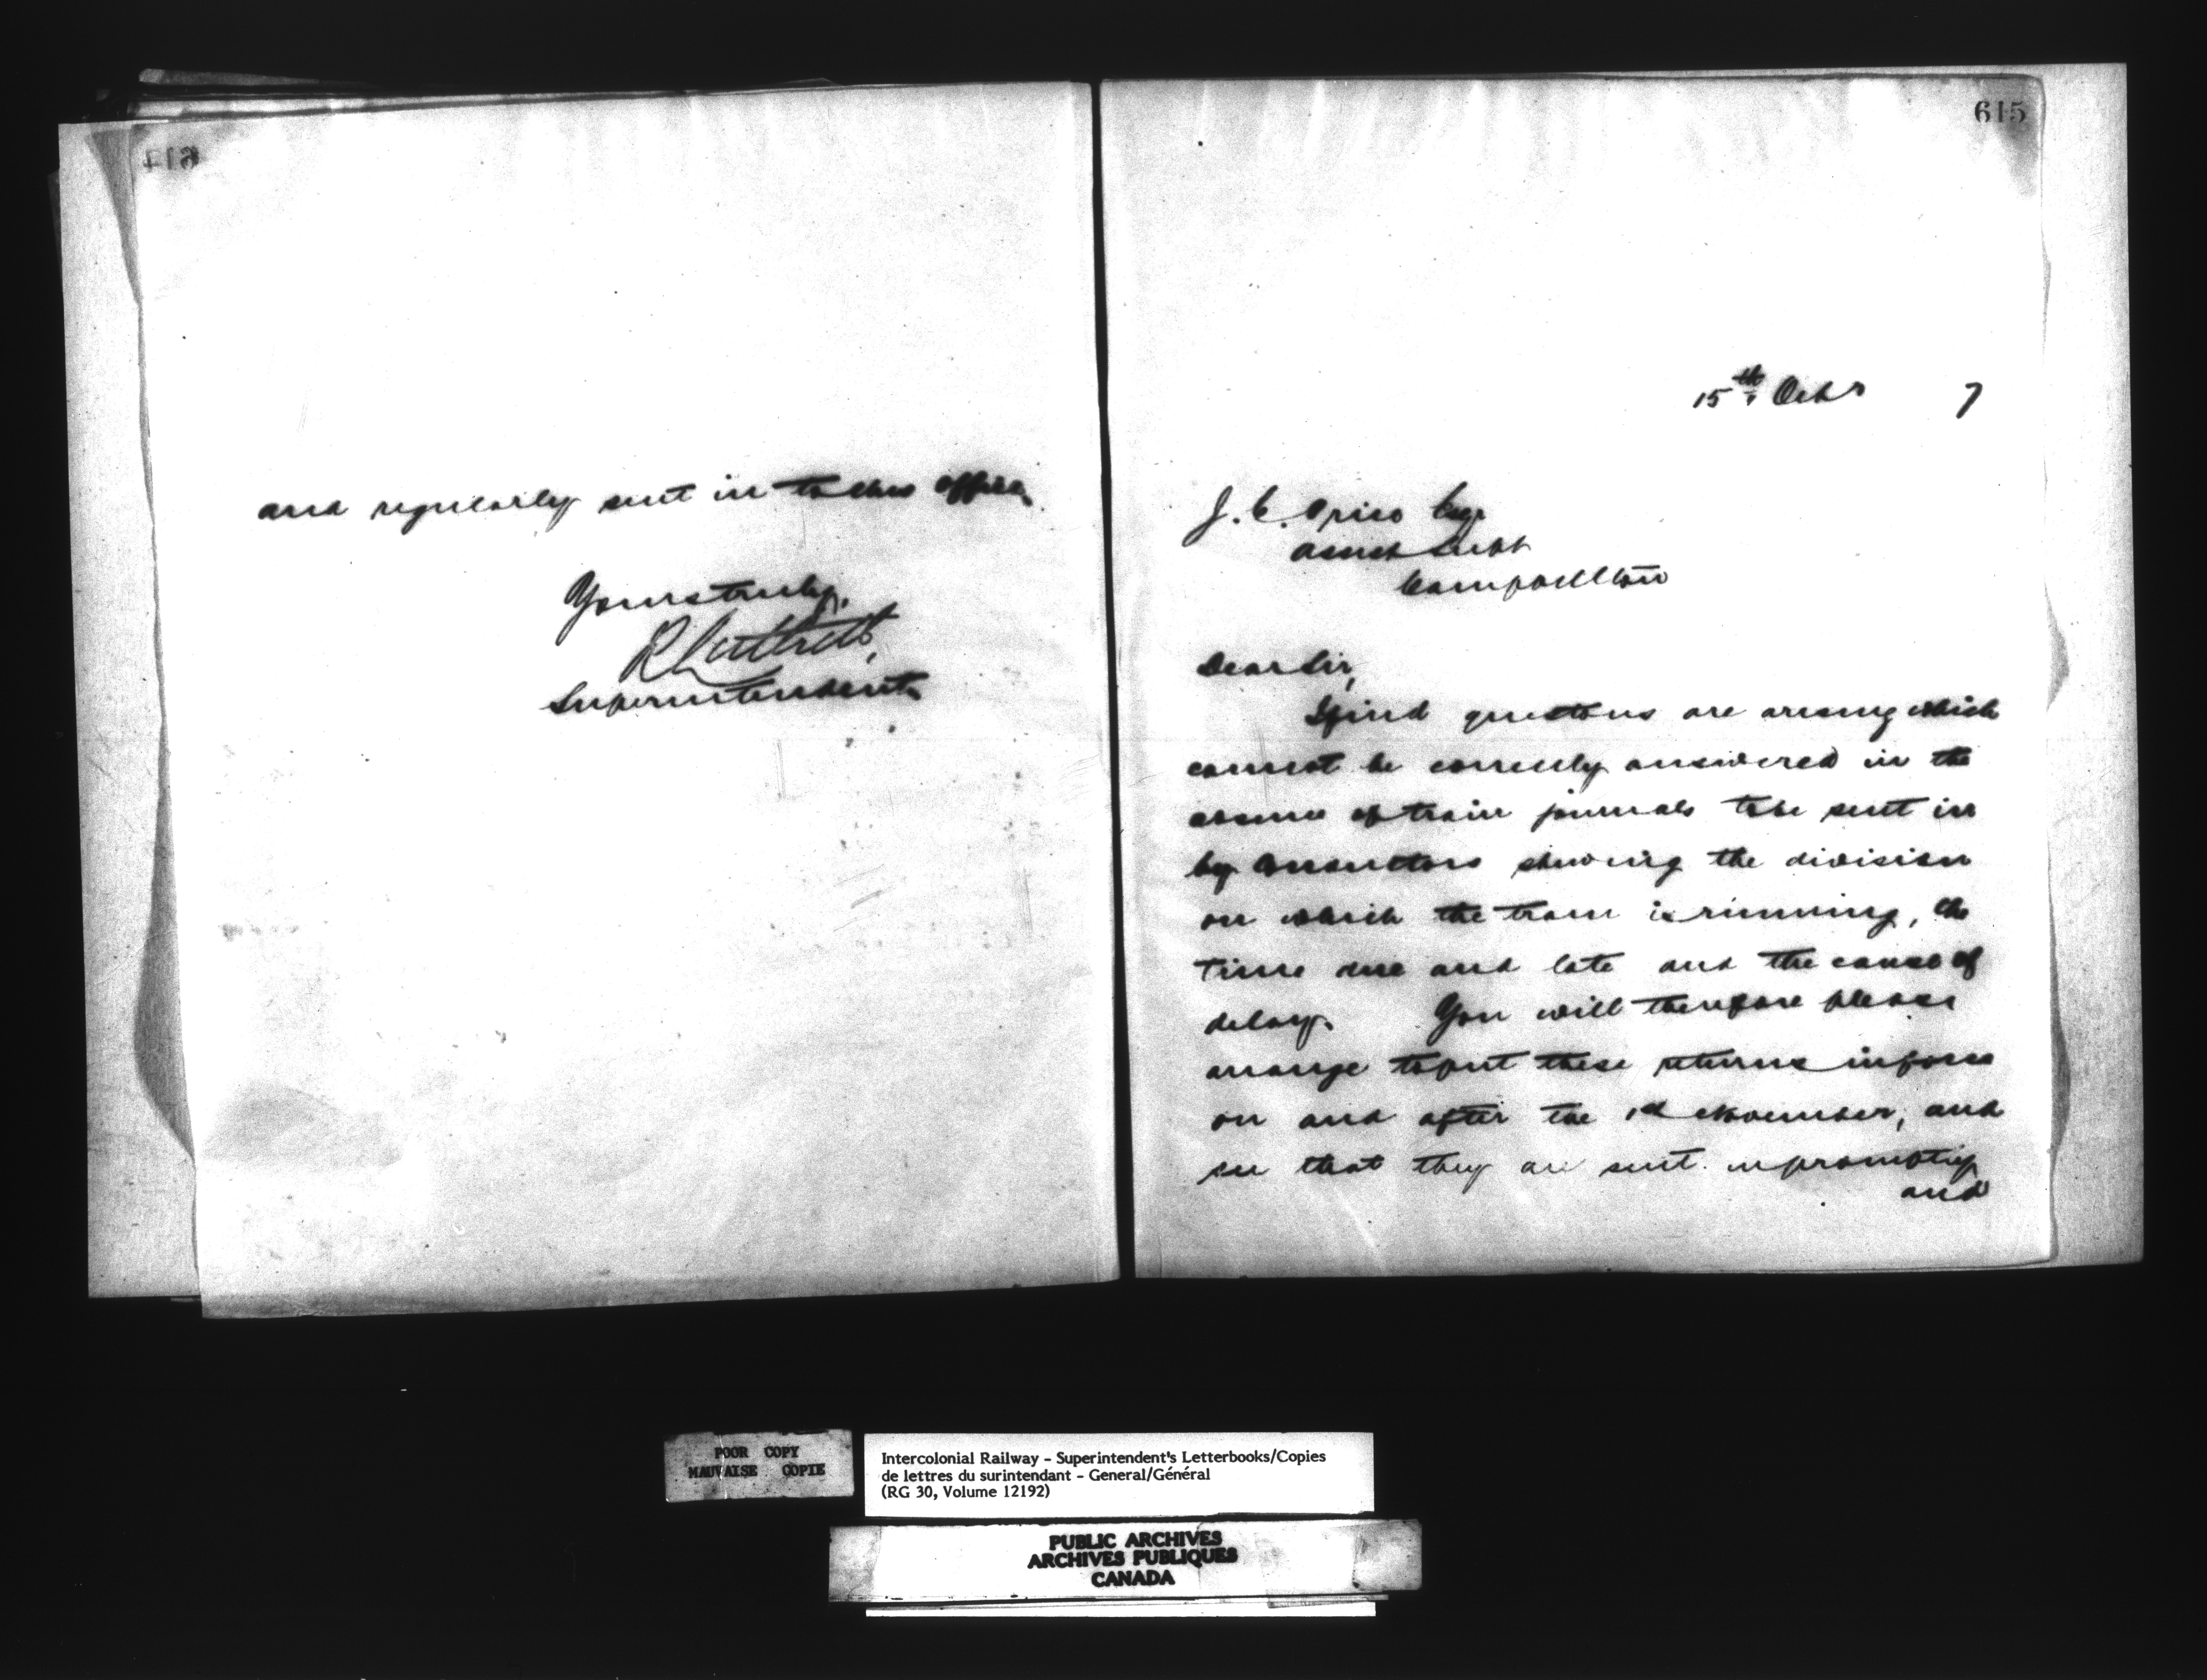 614
and regularly sent in to this office.
Yours truly,
R Luttrell,
Superintendent.
615
15th Octr 7
J. C. Price Esq.
Asst Supt
Campbellton
Dear Sir,
I find questions are arising which
cannot be correctly answered in the
absence of train journals to be sent in
by Conductors showing the division
on which the train is running, the
time due and late and the cause of
delay. You will therefore please
arrange to put these returns in force
on and after the 1st November, and
see that they are sent in promptly
and
POOR COPY
MAUVAISE COPIE
Intercolonial Railway - Superintendent's Letterbooks/Copies
de lettres du surintendant - General/Général
(RG 30, Volume 12192)
PUBLIC ARCHIVES
ARCHIVES PUBLIQUES
CANADA